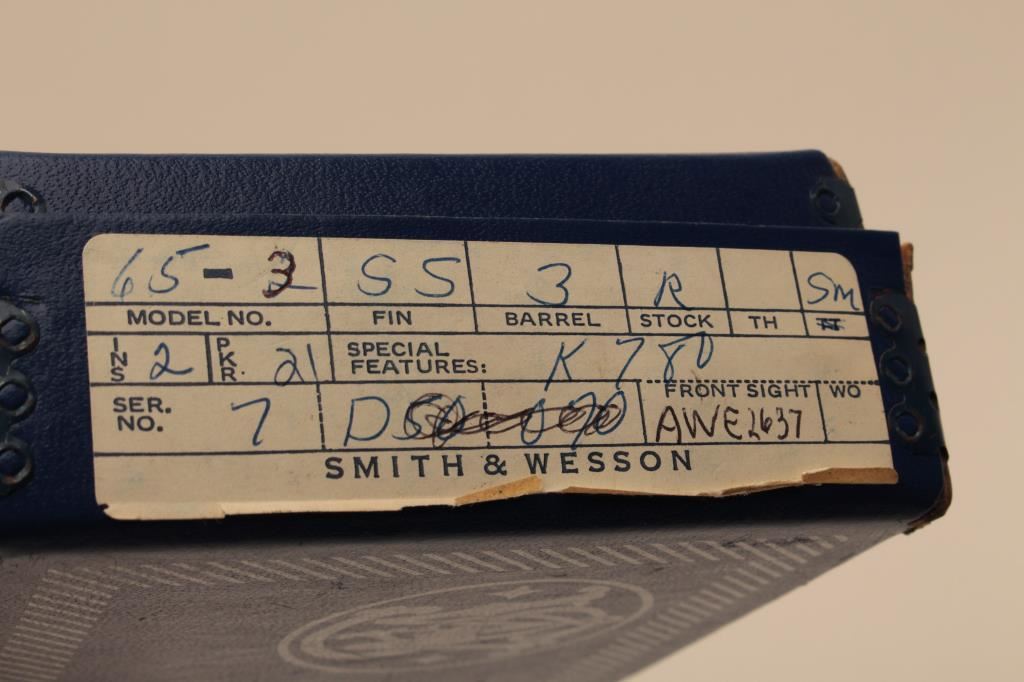 65-3 SS 3 R Sm
MODEL NO. FIN BARREL STOCK TH
INS 2 PKR. 21 SPECIAL FEATURES: K 780
FRONT SIGHT WO
SER. NO. 7 D AWE2637
SMITH & WESSON